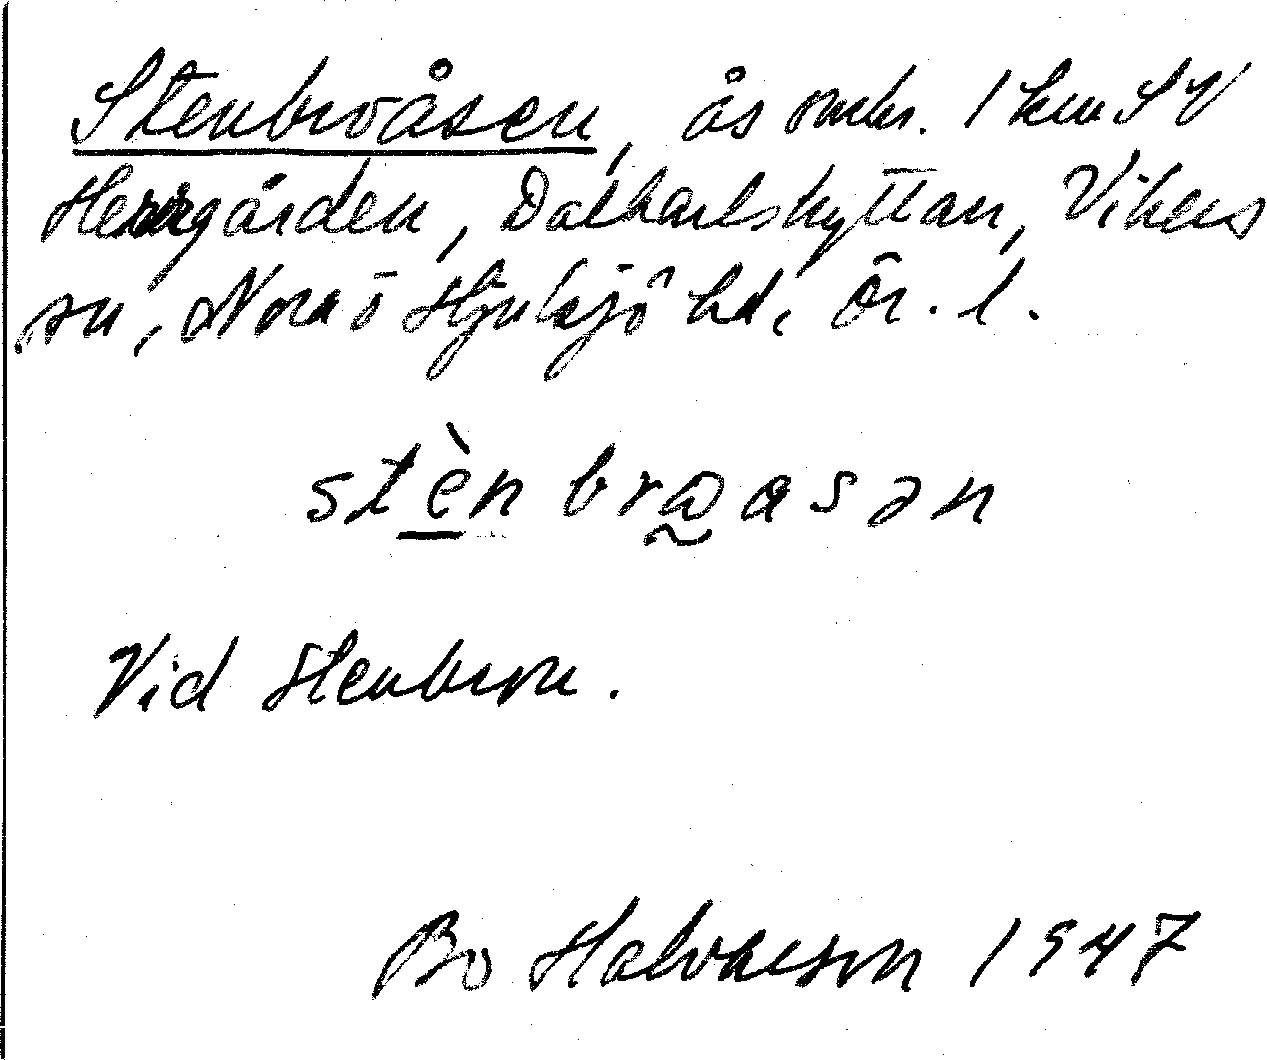 Stenbroåsen, ås omkr. 1 km SV
Herrgården, Dalkarlshyttan, Vikers
sn, Nora ō Hjulsjö hd, Ör. l.
stèn bro̰asən
Vid Stenbron.
Bo Halvarson 1947